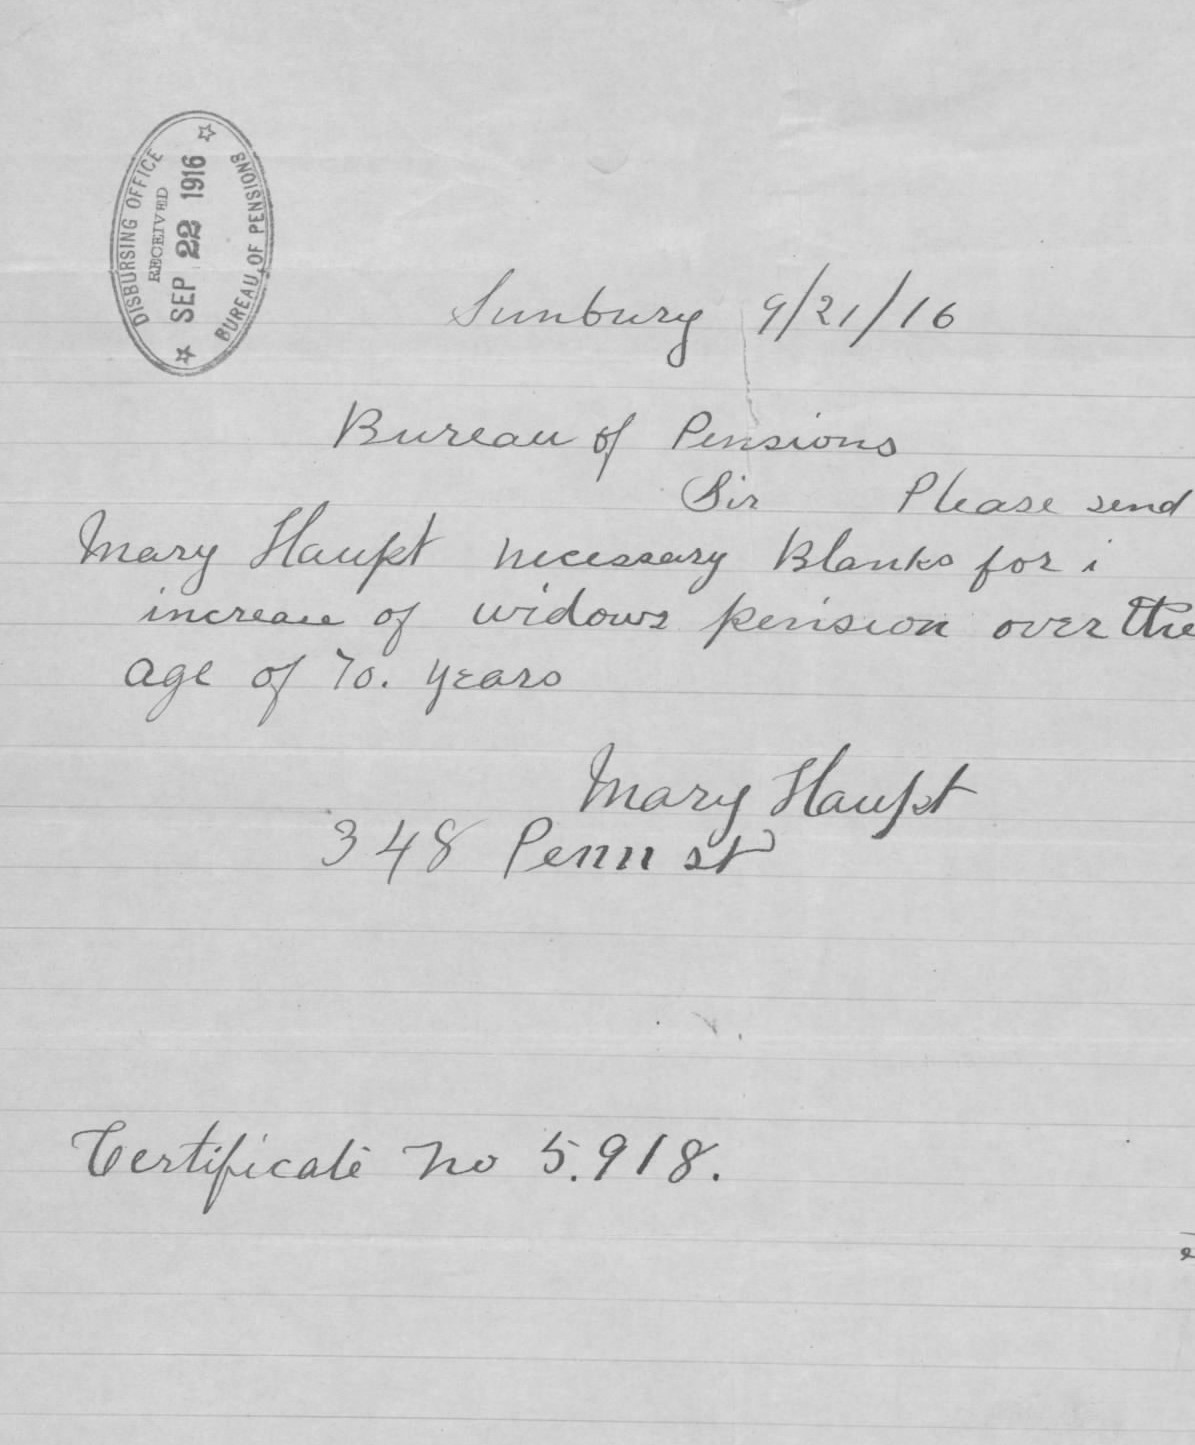 DISBURSING OFFICE
RECEIVED
SEP 22 1916
BUREAU OF PENSIONS
Sunbury 9/21/16
Bureau of Pensions
Sir Please send
Mary Haupt necessary Blanks for i
increase of widows pension over the
age of 70. years
Mary Haupt
348 Penn st
Certificate No 5.918.